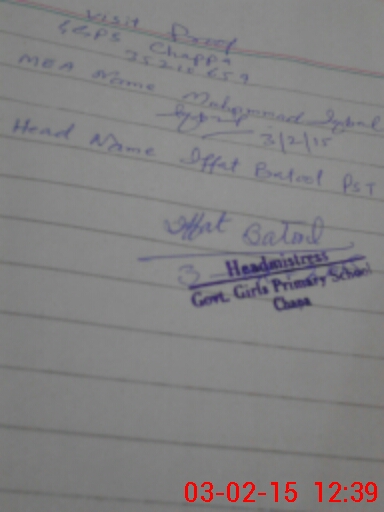 Visit Proof
GGPS Chappa
MEA Name Muhammad Iqbal
3/2/15
Head Name Iffat Batool PST
Iffat Batool
Headmistress
Govt. Girls Primary School
Chapa
03-02-15 12:39